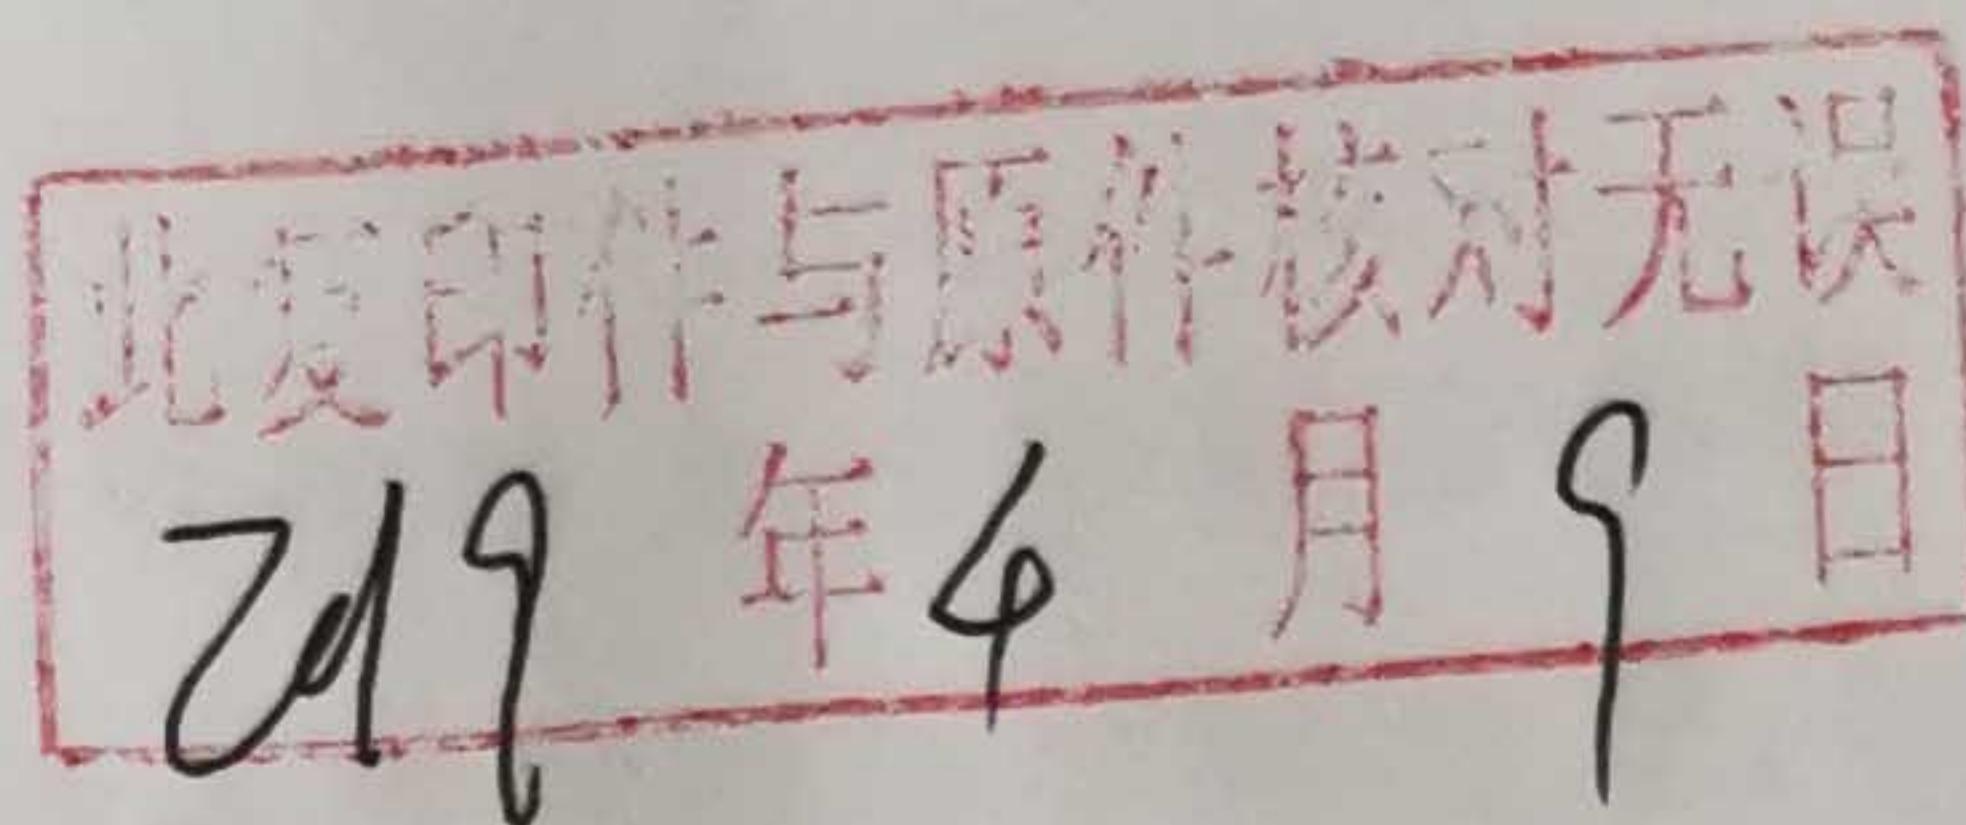 此复印件与原件核对无误
2019年4月9日